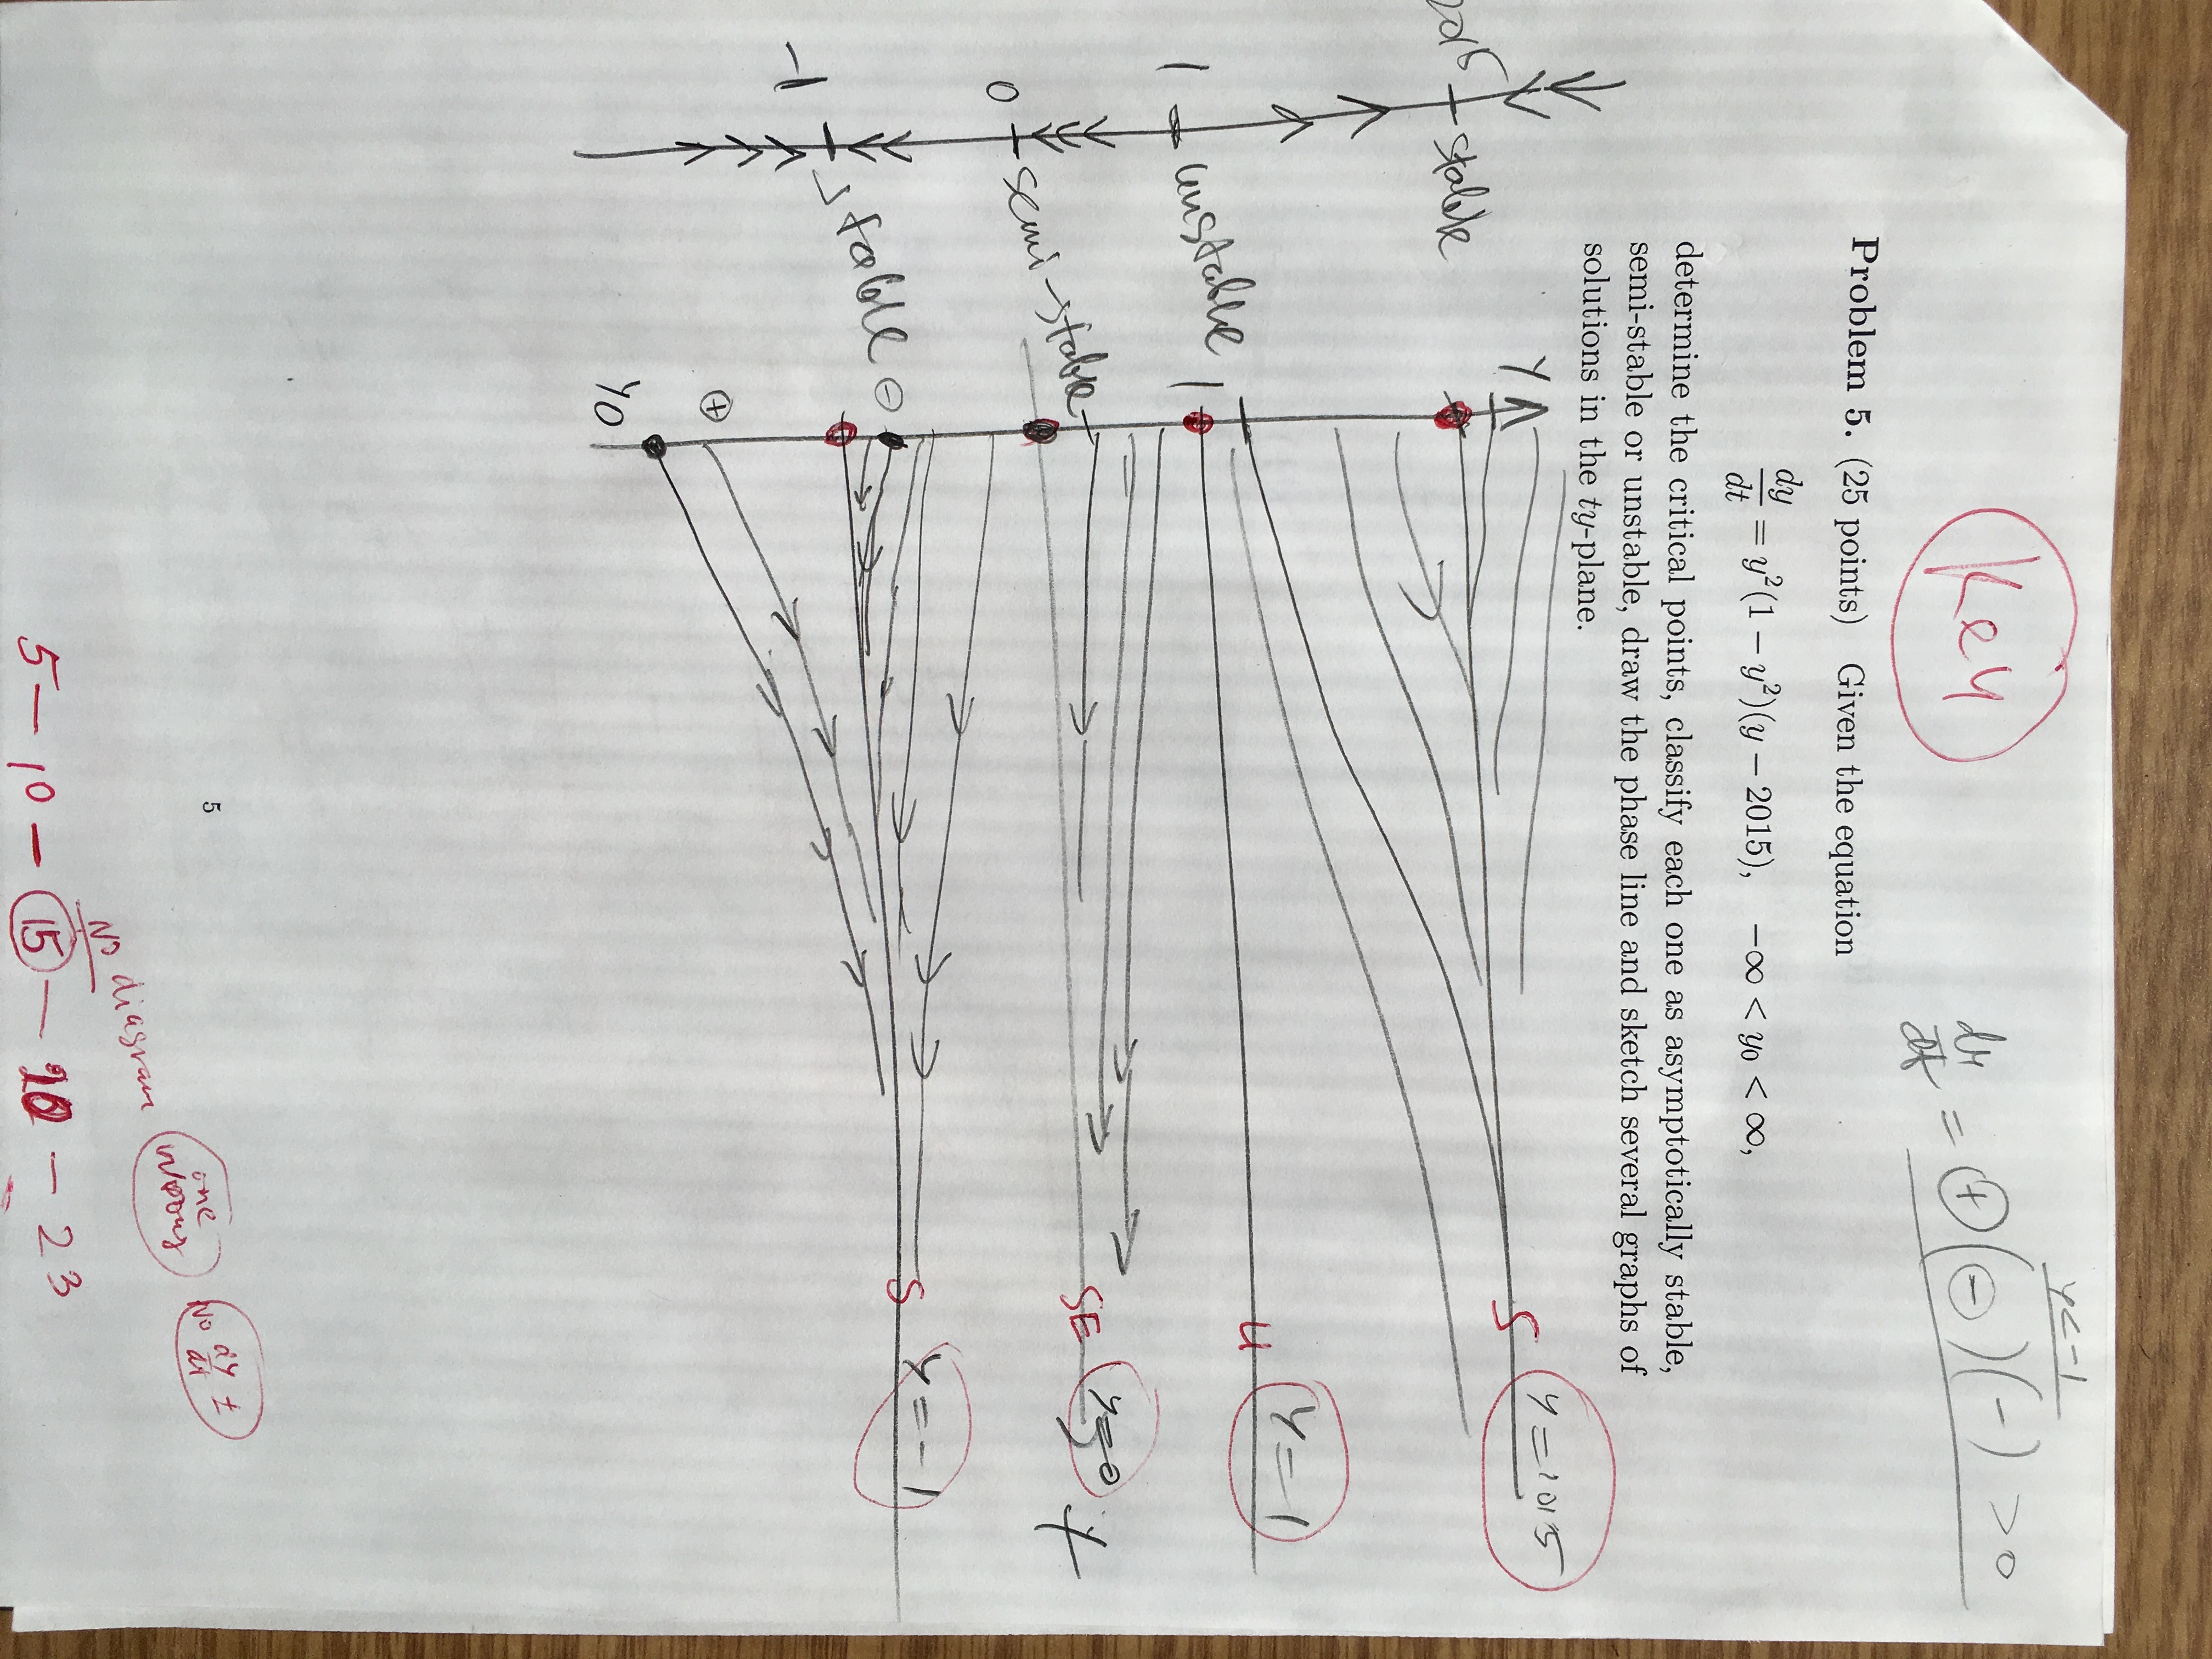 Key
y < -1
dy/dt = ⊕(⊖)(-) > 0
Problem 5. (25 points) Given the equation
dy/dt = y²(1 − y²)(y − 2015), −∞ < y₀ < ∞,
determine the critical points, classify each one as asymptotically stable,
semi-stable or unstable, draw the phase line and sketch several graphs of
solutions in the ty-plane.
2015 stable
y
S y=2015
1 unstable
1
U y=1
0 semi-stable
SE y=0
-1 stable
⊖
S y=-1
⊕
y0
5
No diagram
one wrong
No dy/dt ±
5 — 10 — 15 — 20 — 23